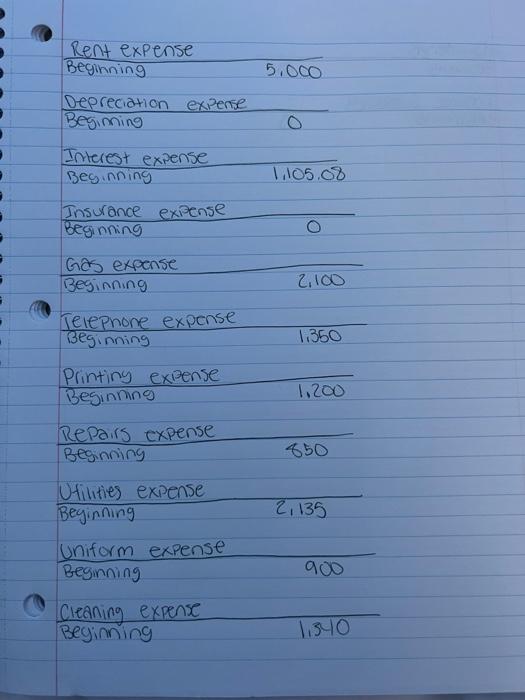 Rent expense
Beginning 5,000
Depreciation expense
Beginning 0
Interest expense
Beginning 1,105.08
Insurance expense
Beginning 0
Gas expense
Beginning 2,100
Telephone expense
Beginning 1,350
Printing expense
Beginning 1,200
Repairs expense
Beginning 850
Utilities expense
Beginning 2,135
Uniform expense
Beginning 900
Cleaning expense
Beginning 1,340